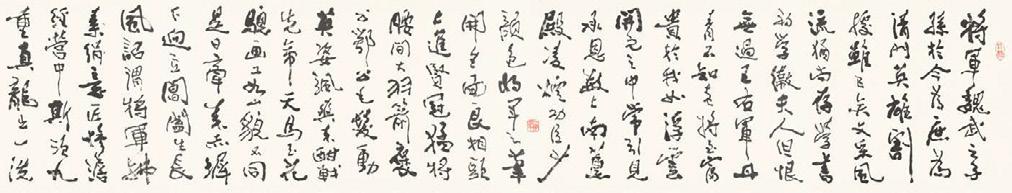 將軍魏武之子
孫於今爲庶爲
清門英雄割
據雖已矣文采風
流猶尚存學書
初學衛夫人但恨
無過王右軍丹
青不知老將至富
貴於我如浮雲
開元之中常引見
承恩數上南薰
殿凌煙功臣少
顏色將軍下筆
開生面良相頭
上進賢冠猛將
腰間大羽箭褒
公鄂公毛髮動
英姿颯爽來酣戰
先帝天馬玉花
驄畫工如山貌不同
是日牽來赤墀
下迥立閶闔生長
風詔謂將軍拂
素絹意匠慘澹
經營中斯須九
重真龍出一洗